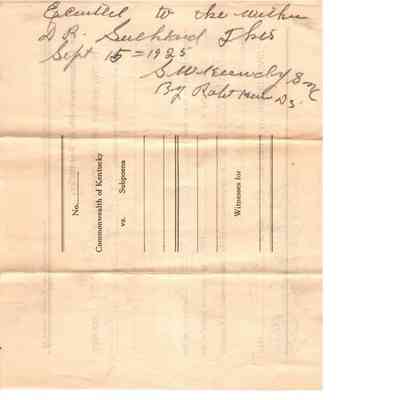 Executed to the within
D. R. Suchland This
Sept 15 = 1925
S W Kennedy S
By Robt D.S.
No.
Commonwealth of Kentucky
vs. Subpoena
Witnesses for